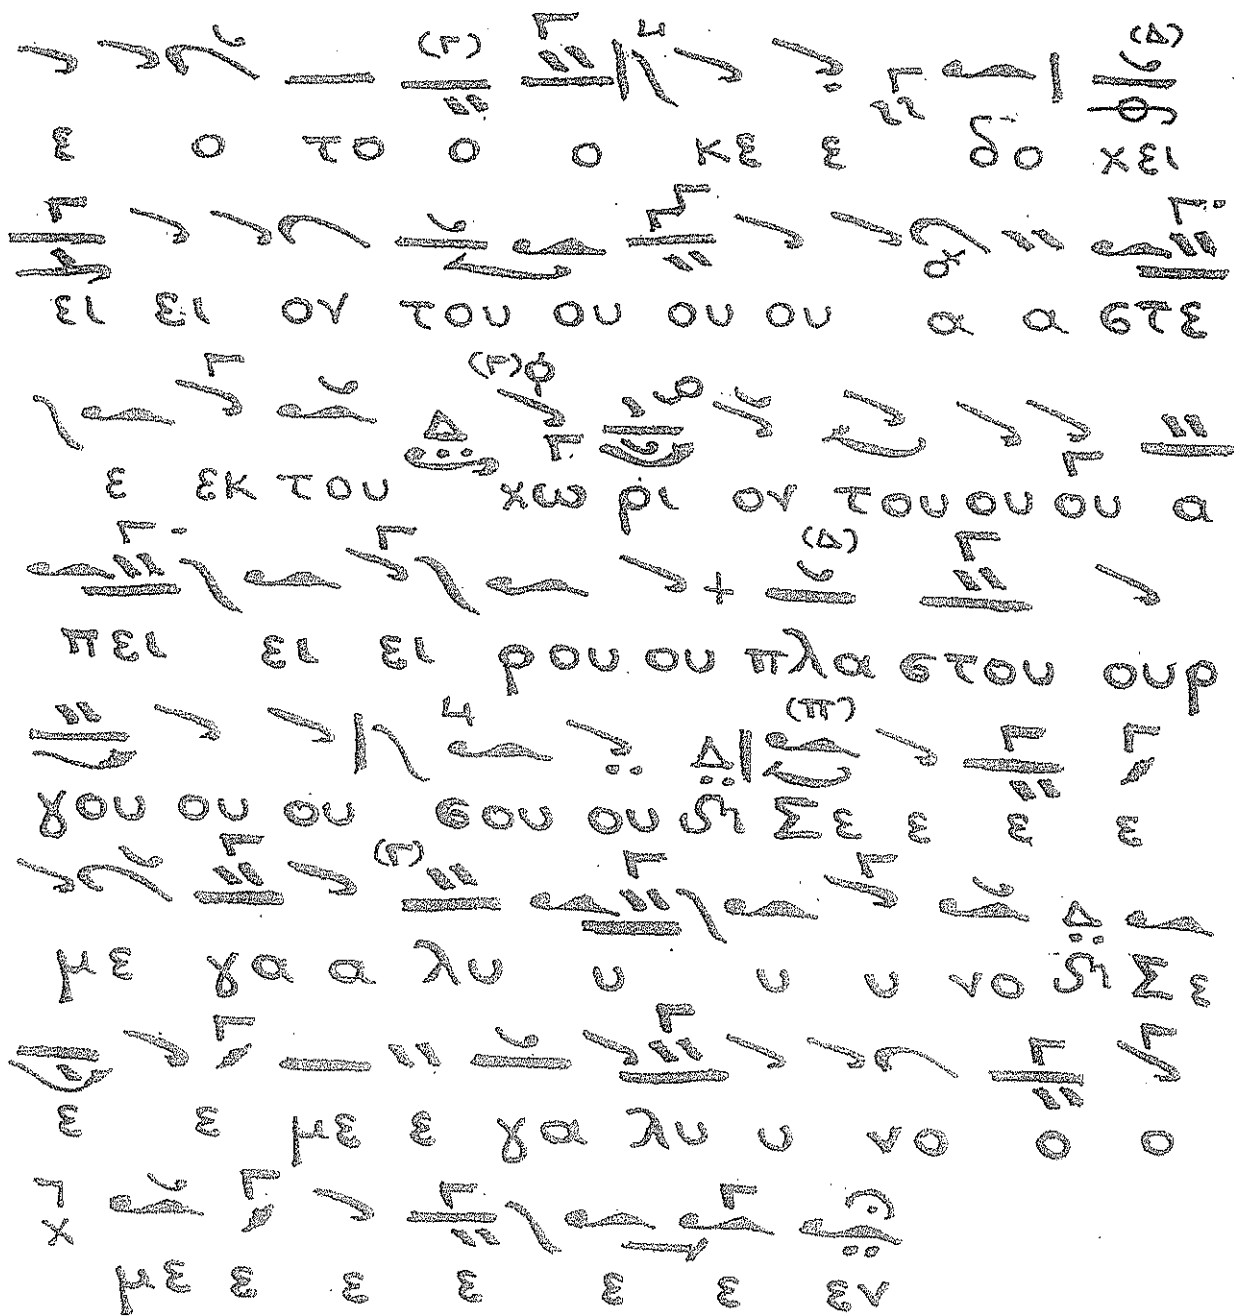 ε ο το ο ο κε ε δο χει
ει ει ον του ου ου ου α α στε
ε εκ του χω ρι ον του ου ου ου α
πει ει ει ρου ου πλα στου ουρ
γου ου ου σου ου ϗ Σε ε ε ε
με γα α λυ υ υ υ νο ϗ Σε
ε ε με ε γα λυ υ νο ο ο
με ε ε ε ε ε εν